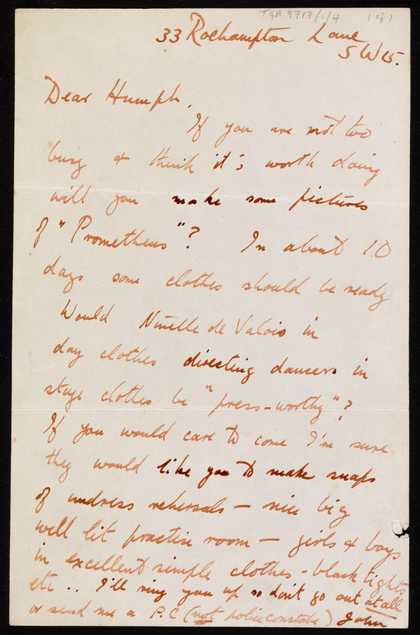 TGA 9717/1/4 1 of 1
33 Roehampton Lane
SW15.
Dear Humph,
If you are not too
busy & think it's worth doing
will you make some pictures
of "Prometheus"? In about 10
days some clothes should be ready
Would Ninette de Valois in
day clothes directing dancers in
stage clothes be "press-worthy"?
If you would care to come I'm sure
they would like you to make snaps
of undress rehersals — nice big
well lit practise room — girls & boys
in excellent simple clothes - black tights
etc .. I'll ring you up so don't go out at all
or send me a P.C (not policeconstable) John